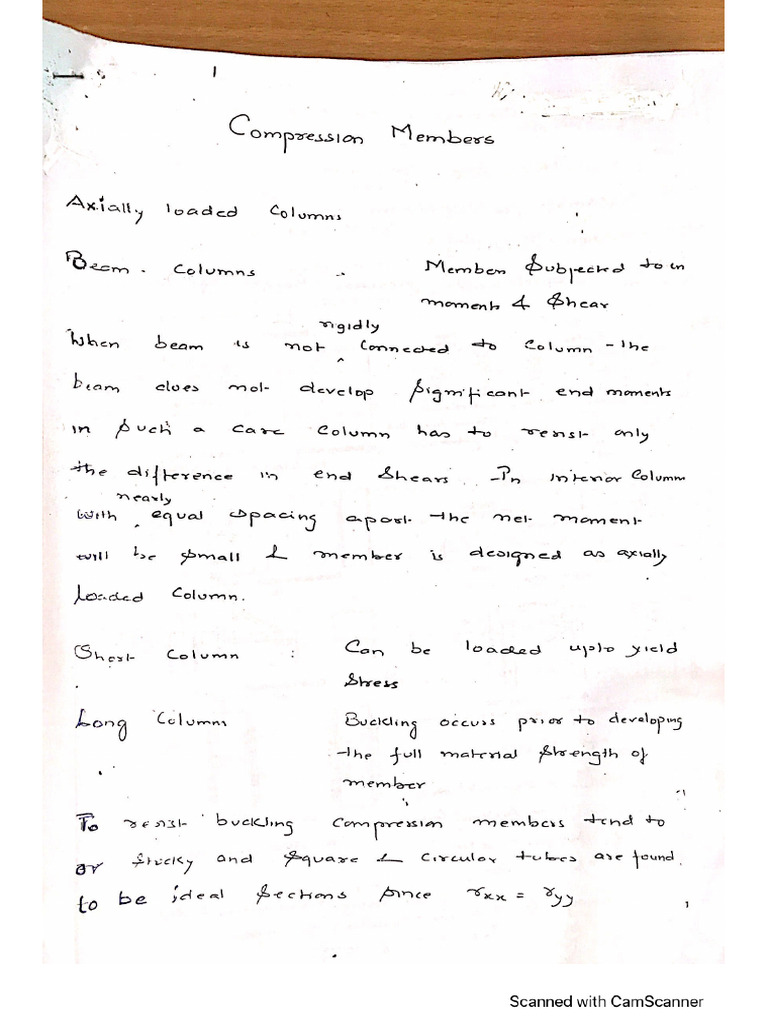 1
Compression Members
Axially loaded Columns
Beam. Columns Member Subjected to
moment & Shear
rigidly
When beam is not ^ connected to column the
beam does not develop significant end moments
in such a case column has to resist only
the difference in end Shears. In interior Column
nearly
with ^ equal spacing apart the net moment
will be small & member is designed as axially
loaded Column.
Short Column : Can be loaded upto yield
Stress
Long Columns Buckling occurs prior to developing
the full material strength of
member
To resist buckling compression members tend to
or stucky and square & circular tubes are found
to be ideal sections since rxx = ryy
Scanned with CamScanner